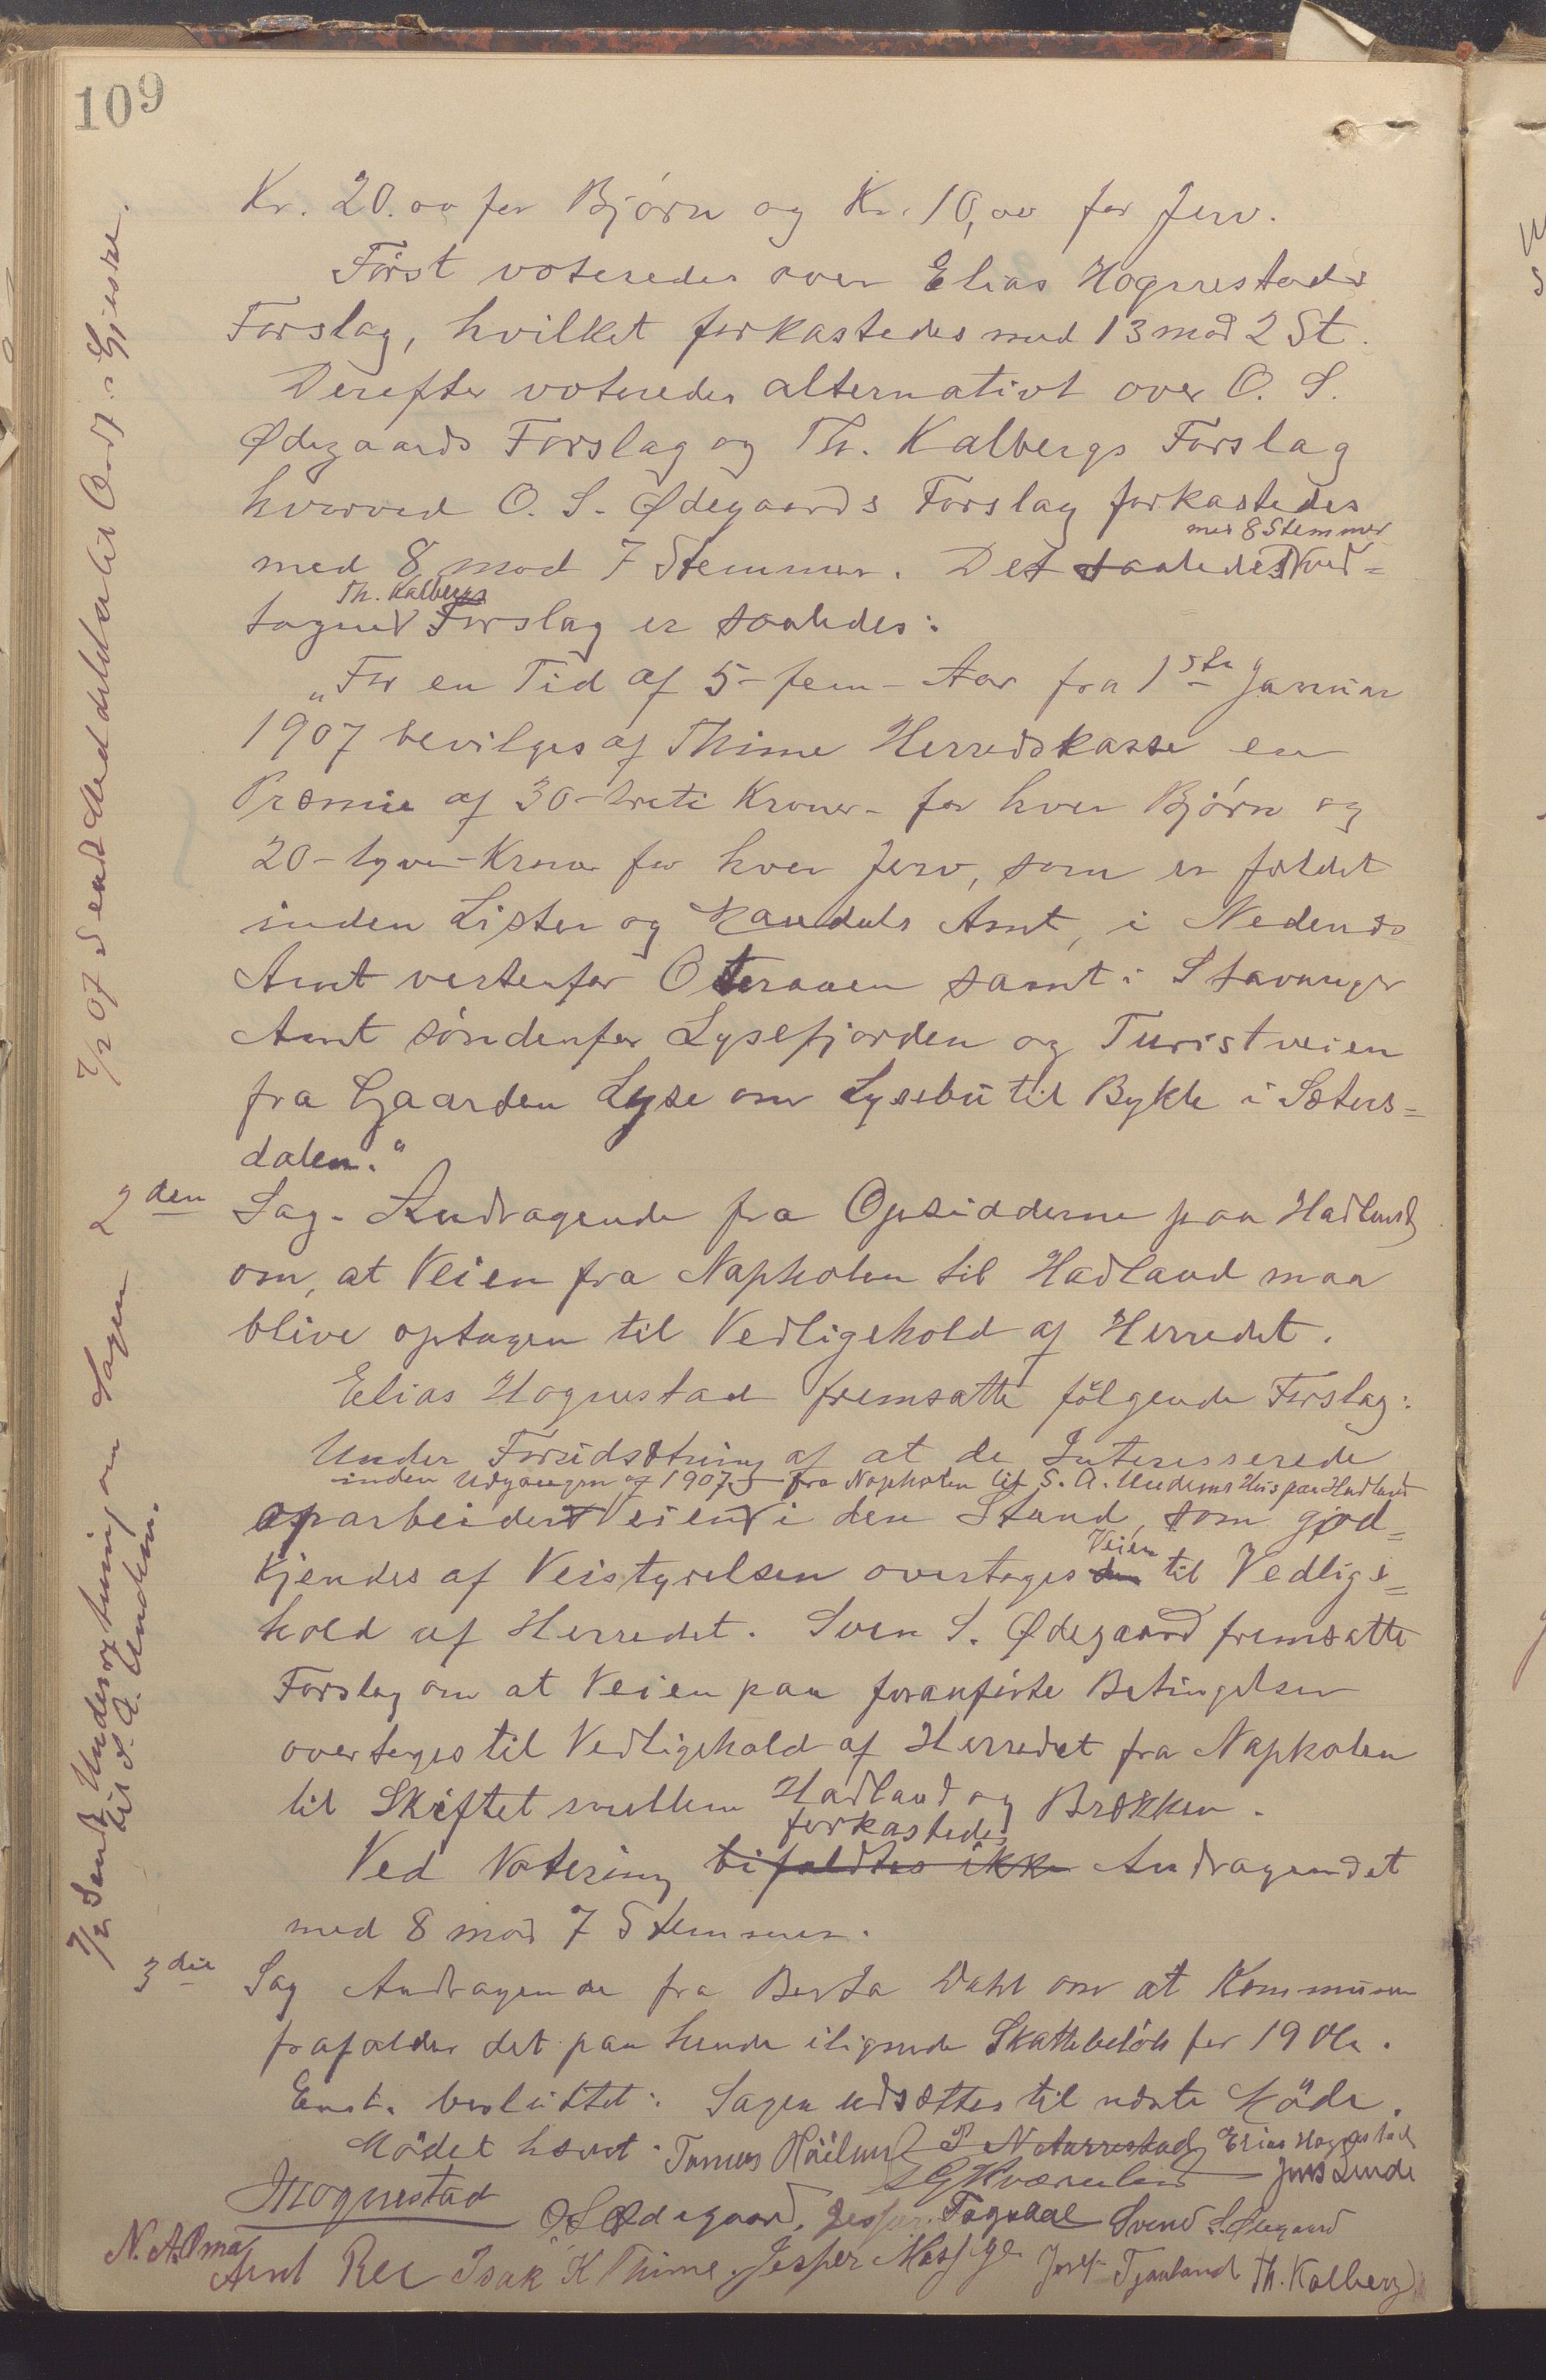 109
Kr. 20.00 for Bjørn og Kr. 10,00 for Jerv.
Først voteredes over Elias Hognestads
Forslag, hvilket forkastedes med 13 mod 2 St.
Derefter voteredes alternativt over O. S.
Ødegaards Forslag og Th. Kalbergs Forslag
hvorved O. S. Ødegaards Forslag forkastedes
med 8 Stemmer
med 8 mod 7 Stemmer. Det saaledes ved=
Th. Kalbergs
tagne Forslag er saaledes:
„For en Tid af 5-fem-Aar fra 1ste Januar
1907 bevilges af Thime Herredskasse en
Præmie af 30-treti Kroner- for hver Bjørn og
20-tyve-Kroner for hver Jerv, som er fældet
inden Lister og Mandals Amt, i Nedenæs
Amt vestenfor Otteraaen samt i Stavanger
Amt søndenfor Lysefjorden og Turistveien
fra Gaarden Lyse over Lysebu til Bykle i Sæters=
dalen."
2den Sag. Andragende fra Opsidderne paa Hadland
om, at Veien fra Napholen til Hadland maa
blive optagen til Vedligehold af Herredet.
Elias Hognestad fremsatte følgende Forslag:
Under Forudsætning af at de Interesserede
inden Udgangen af 1907 fra Napholen til S. A. Undems Hus paa Hadland
oparbeider Veien i den Stand, som god=
Veien
kjendes af Veistyrelsen overtages den til Vedlige=
hold af Herredet. Sven S. Ødegaard fremsatte
Forslag om at Veien paa foranførte Betingelser
overtages til Vedligehold af Herredet fra Napholen
til Skiftet mellem Hadland og Brækken.
forkastedes
Ved Votering bifaldtes ikke Andragendet
med 8 mod 7 Stemmer.
3die Sag Andragende fra Berta Dahl om at Kommunen
frafalder det paa hende ilignede Skattebeløb for 1906.
Enst. besluttet: Sagen udsættes til næste Møde.
Mødet hævet. Tomas Håiland P N Aarrestad Elias Hognestad
S G Kværneland Jens Lende
Hognestad O S Ødegaard, Jesper Fogdal Svend S. Øegaard
N. A. Oma
Arnt Ree Isak K Thime. Jesper Mossige Josef Tjaaland Th. Kalberg
7/2 07 Sendt Meddelelse til Ordf. i Gjesdal.
7/2 Sendt Underretning om Sagen
til S. A. Undem.